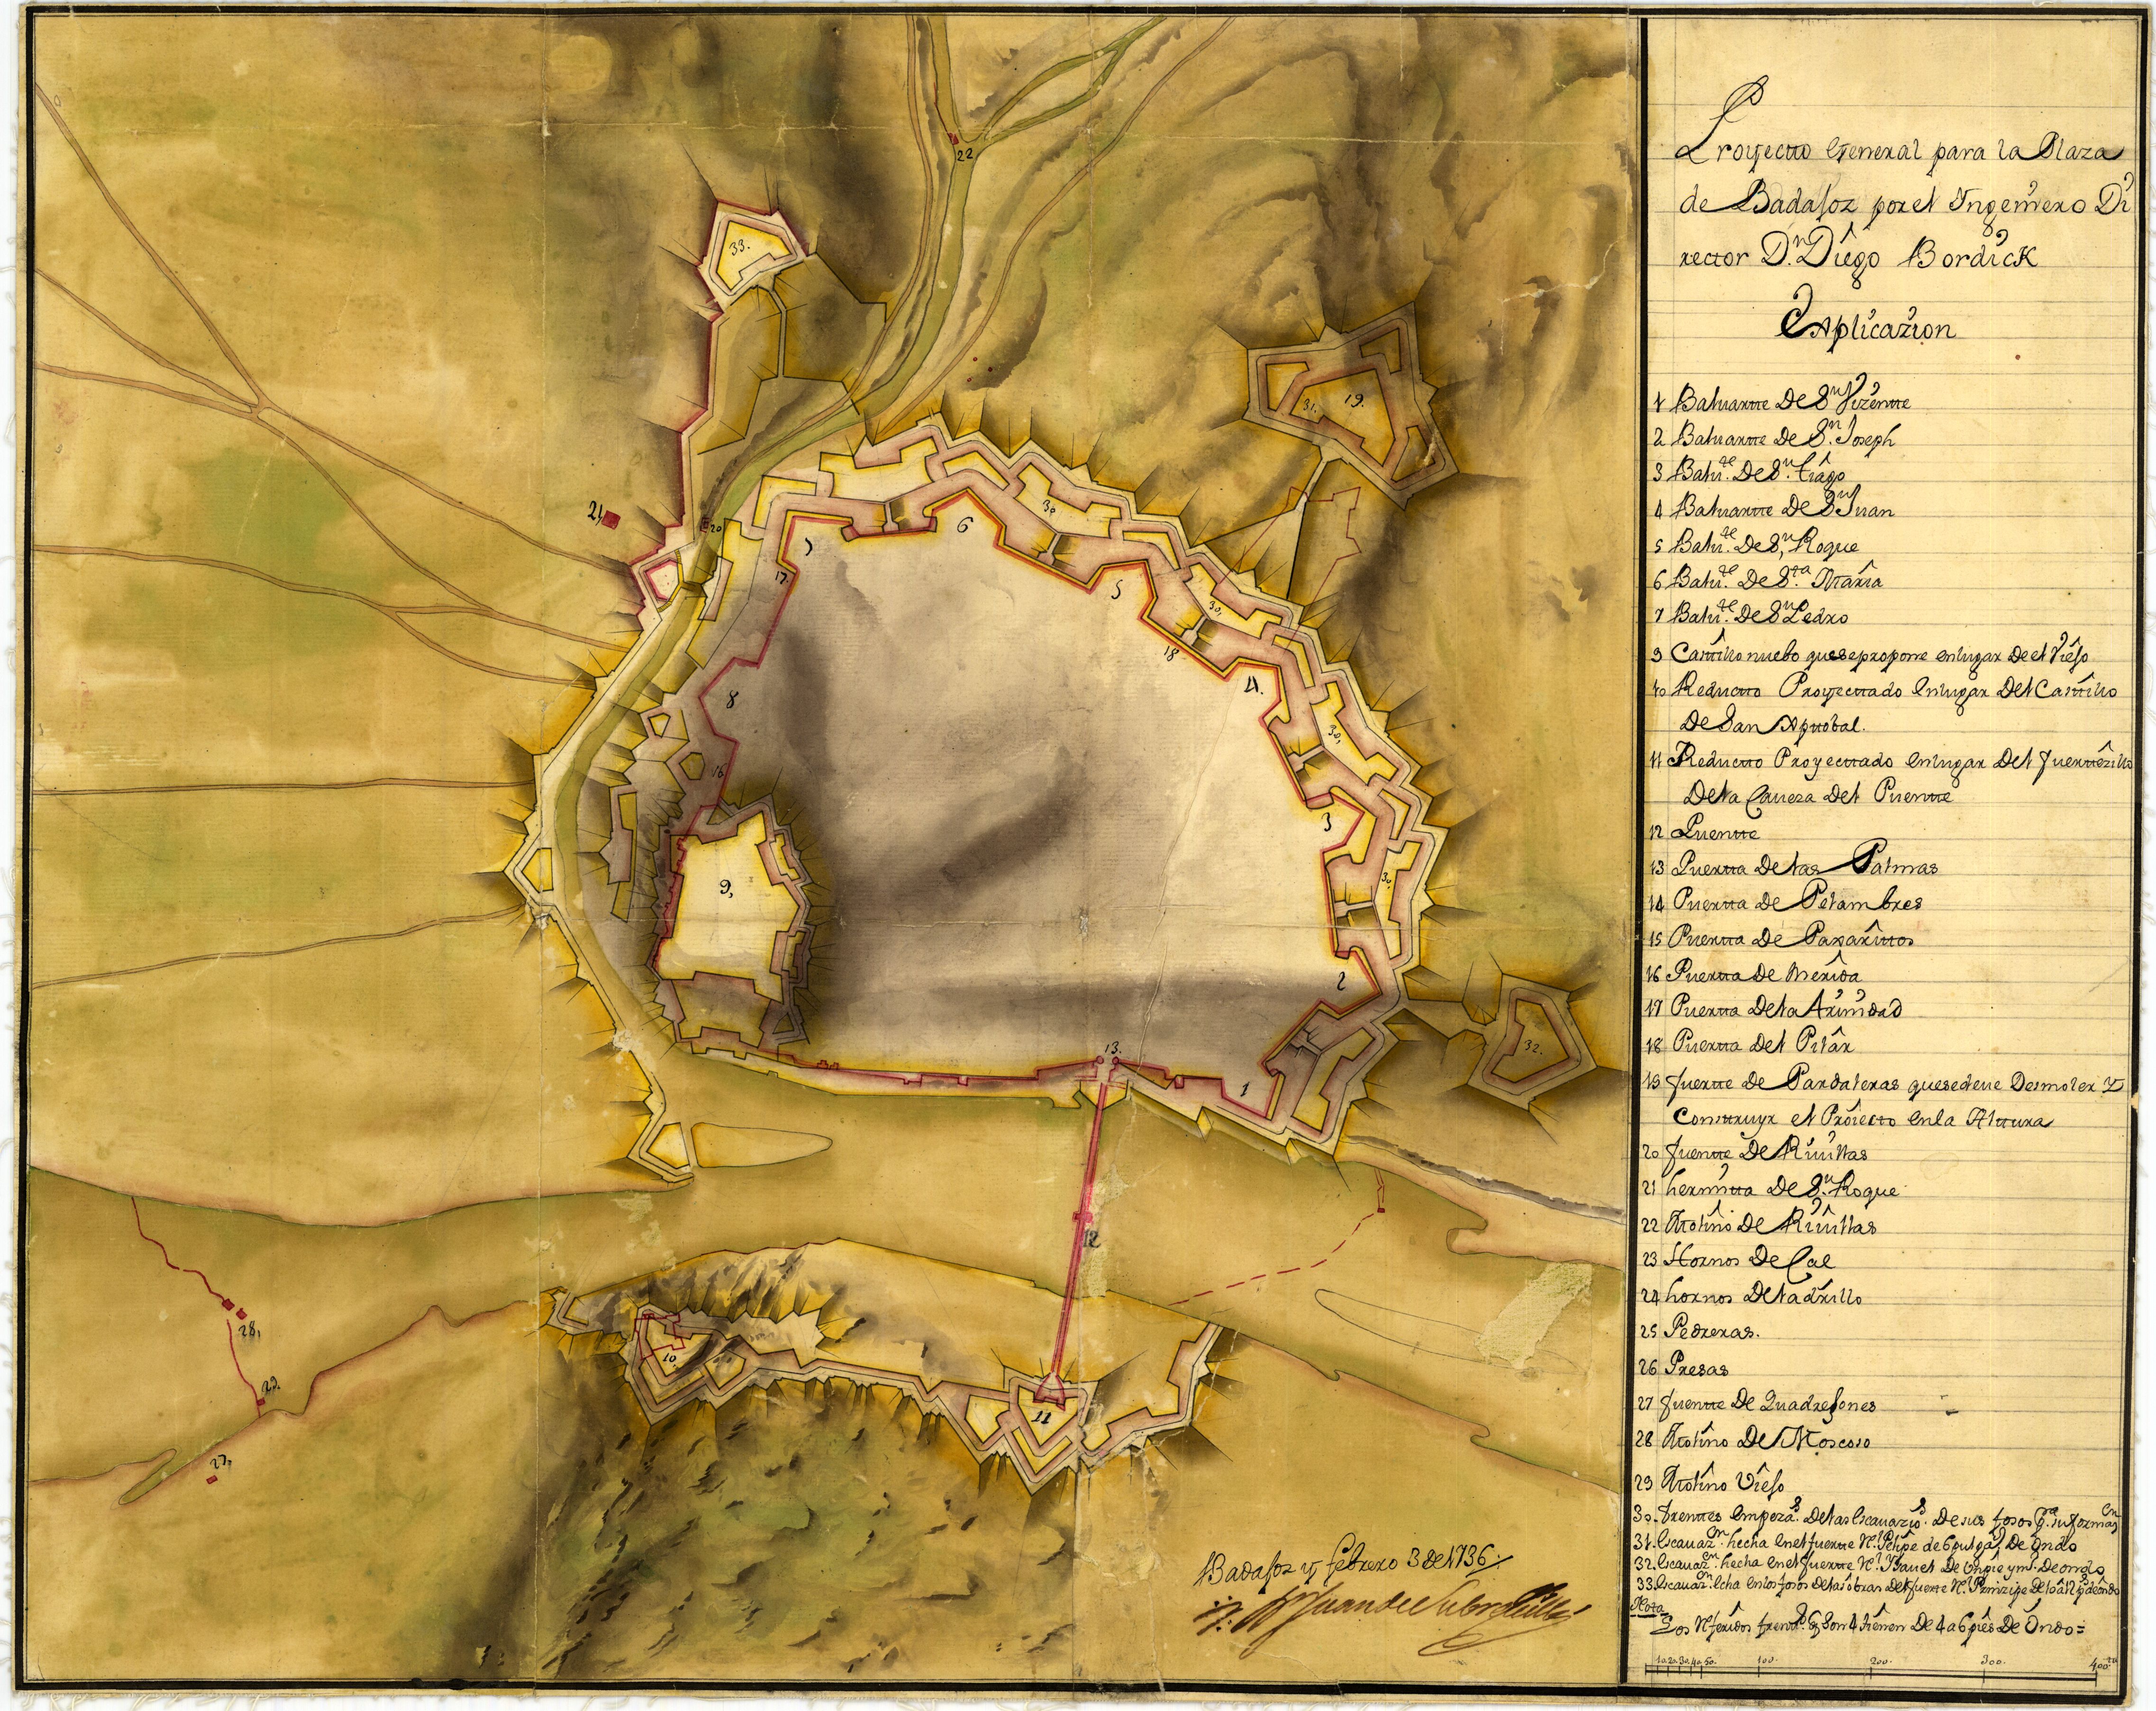 Proyecto General para la Plaza
de Badajoz por el Ingeniero Di
rector Dn. Diego Bordick
Explicazion
1 Baluartte De Sn Vizentte
2 Baluartte De Sn. Joseph
3 Balu.te De Sn. tiago
4 Baluartte De Sn Juan
5 Balu.te De Sn, Roque
6 Balu.te De S.ta Maria
7 Balu.te De Sn Pedro
9 Casttillo nuebo que se propone en lugar De el Viejo
10 Reductto Proyecttado en lugar Del Casttillo
De San Xptobal.
11 Reductto Proyecttado en lugar Del fuerttezillo
De la Caveza Del Puentte
12 Puentte
13 Puertta De las Palmas
14 Puertta De Pelambres
15 Puertta De Paxarittos
16 Puertta De Merida
17 Puertta De la Trinidad
18 Puertta Del Pilar
19 fuertte De Pardaleras que se deve Demoler Y
Construyr el Proiecto en la Alttura
20 fuentte De Rivillas
21 hermitta De Sn. Roque
22 Molino De Rivillas
23 Hornos De Cal
24 hornos De ladrillo
25 Pedreras.
26 Presas
27 fuentte De Quadrejones
28 Molino De Moscoso
29 Molino Viejo
30. frenttes empeza.s De las escavazio.s De sus fosos
31. escavaz.on hecha en el fuertte Rl. Phelipe de 6 pulga.s De ondo
32. escavaz.on hecha en el fuertte Rl. Ysavel De un pie y m.o De ondo
33. escavaz.on echa en los fosos De las obras Del fuerte Rl. Prinzipe De
Nota
Los Referidos frenttes Son 4 tienen De 4 a 6 pies De Ondo=
10. 20. 30. 40. 50. 100. 200. 300. 400
33.
22
19.
31.
21,
20
7
6
30
17.
5
30,
18
4.
8
30,
16
3
9,
30
2
32.
13.
1
12
28,
29.
10.
11
27,
Badajoz y febrero 3 de 1736